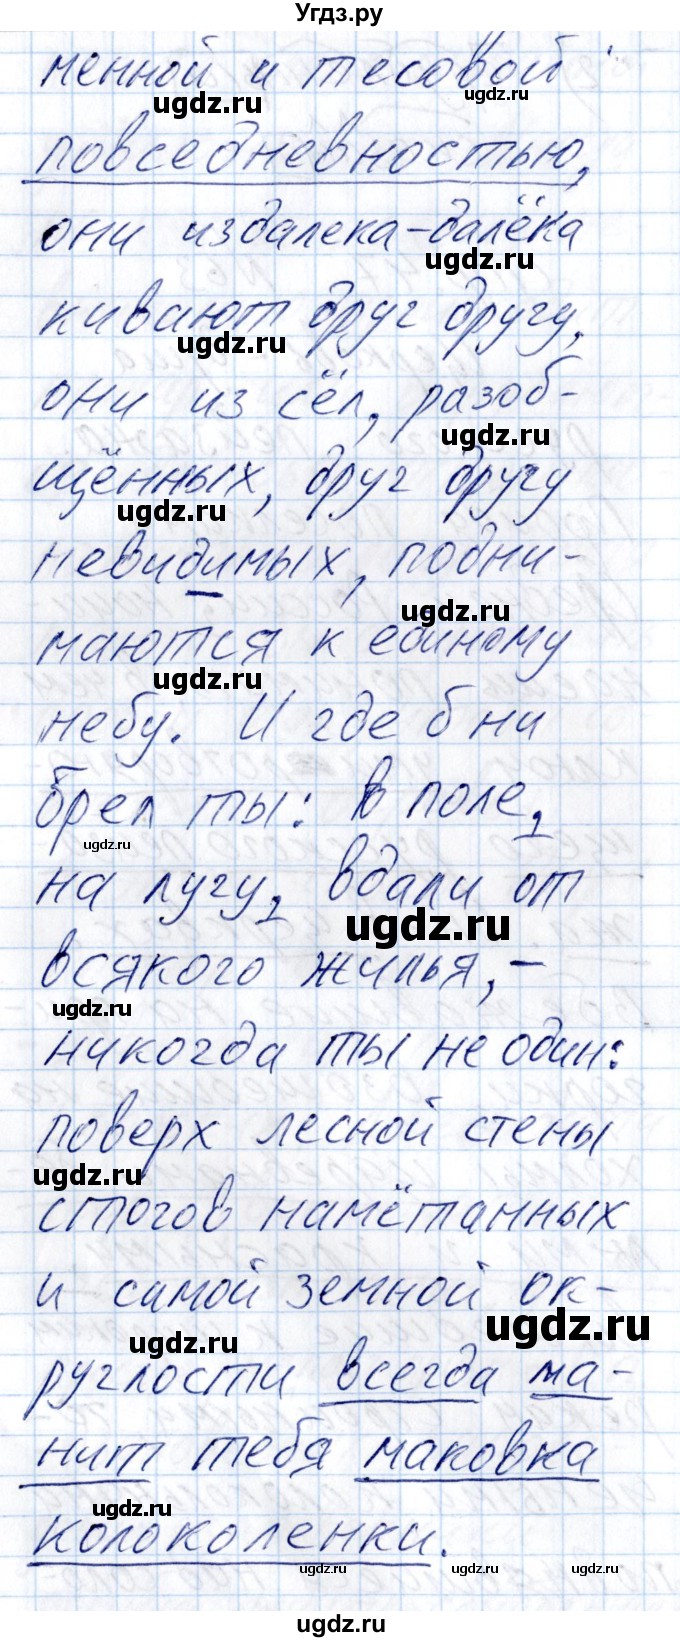 Угдз.ру
менной и тесовой
ugdz.ru ugdz.ru
повседневностью,
они издалека-далёка
ugdz.ru
кивают друг другу,
ugdz.ru
они из сёл, разоб-
ugdz.ru
щённых, друг другу
ugdz.ru
невидимых, подни-
ugdz.ru
маются к единому
ugdz.ru
небу. И где б ни
брел ты: в поле,
ugdz.ru
на лугу, вдали от
ugdz.ru
всякого жилья,-
ugdz.ru
никогда ты не один:
поверх лесной стены
ugdz.ru
стогов намётанных
и самой земной ок-
ugdz.ru ugdz.ru
руглости всегда ма-
нит тебя маковка
ugdz.ru
колоколенки.
ugdz.ru ugdz.ru
ugdz.ru